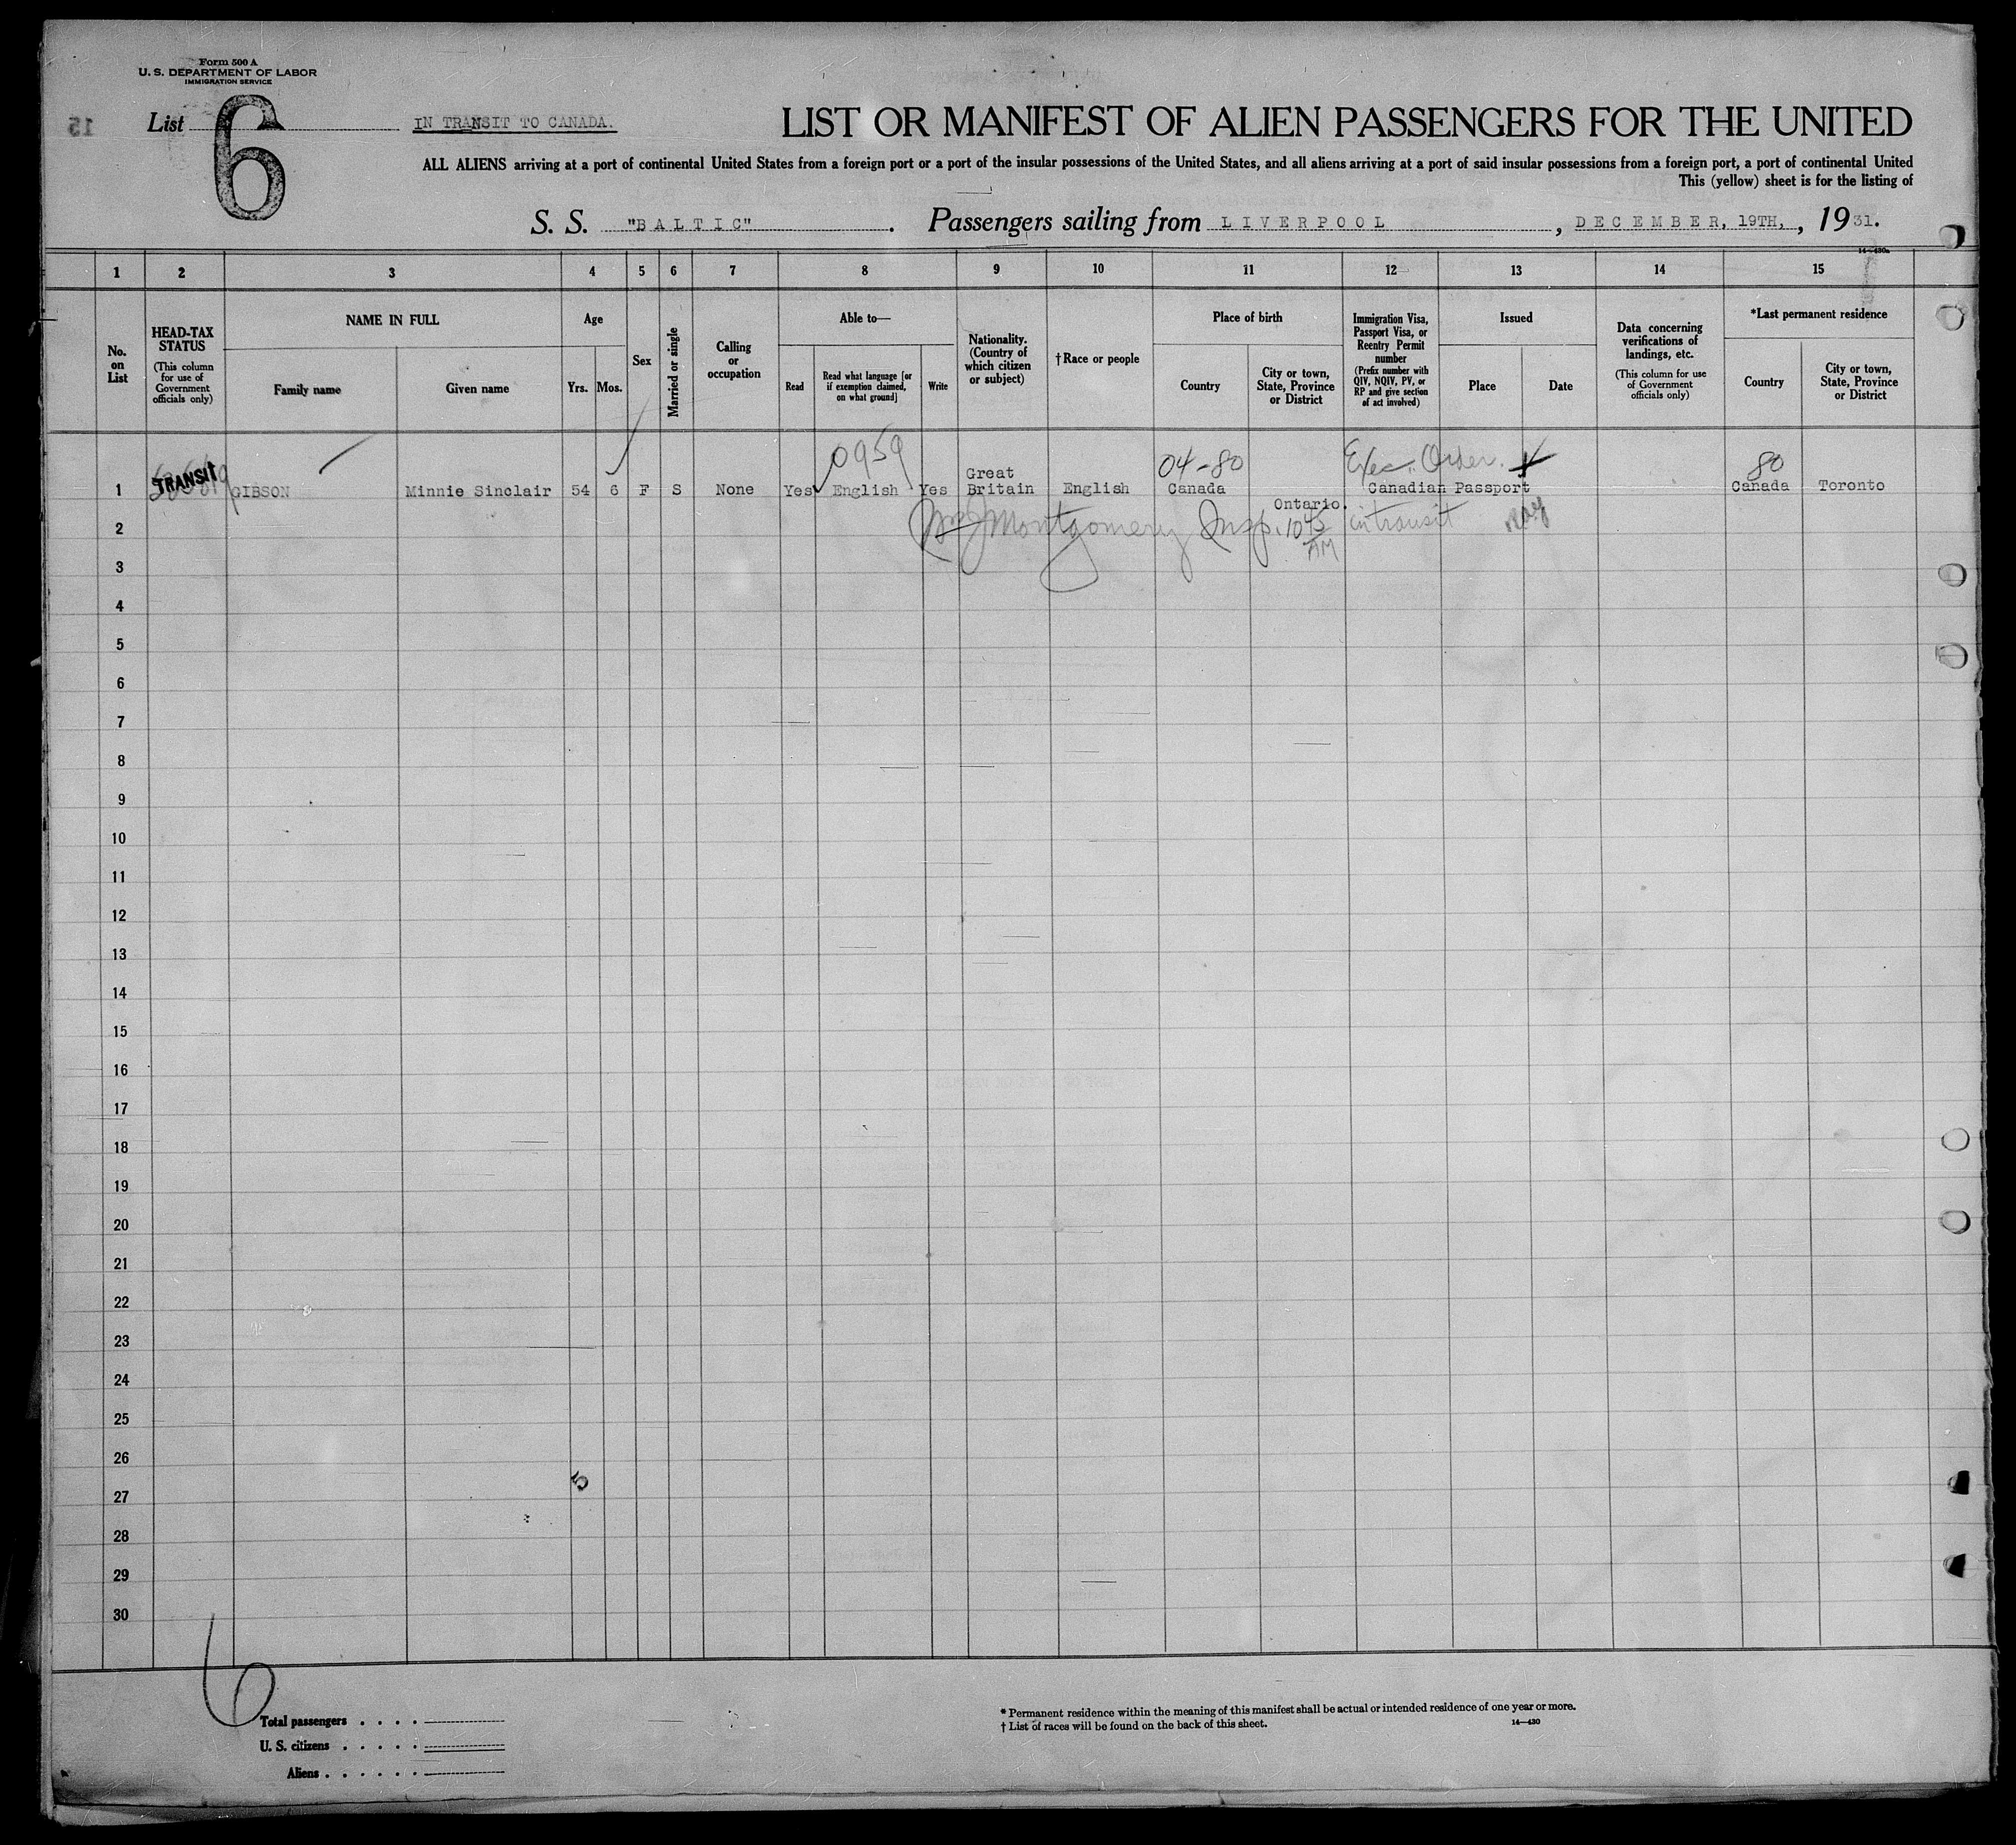 Form 500 A
U. S. DEPARTMENT OF LABOR
IMMIGRATION SERVICE
15
List 6
IN TRANSIT TO CANADA.
LIST OR MANIFEST OF ALIEN PASSENGERS FOR THE UNITED
ALL ALIENS arriving at a port of continental United States from a foreign port or a port of the insular possessions of the United States, and all aliens arriving at a port of said insular possessions from a foreign port, a port of continental United
This (yellow) sheet is for the listing of
S. S. "BALTIC" . Passengers sailing from LIVERPOOL , DECEMBER, 19TH, , 19 31.
14—430a
1 2 3 4 5 6 7 8 9 10 11 12 13 14 15
No. on List
HEAD-TAX STATUS
(This column for use of Government officials only)
NAME IN FULL
Family name
Given name
Age
Yrs.
Mos.
Sex
Married or single
Calling or occupation
Able to—
Read
Read what language [or if exemption claimed, on what ground]
Write
Nationality. (Country of which citizen or subject)
†Race or people
Place of birth
Country
City or town, State, Province or District
Immigration Visa, Passport Visa, or Reentry Permit number
(Prefix number with QIV, NQIV, PV, or RP and give section of act involved)
Issued
Place
Date
Data concerning verifications of landings, etc.
(This column for use of Government officials only)
*Last permanent residence
Country
City or town, State, Province or District
0959 04-80 Exec. Order. 80
1 TRANSIT GIBSON Minnie Sinclair 54 6 F S None Yes English Yes Great Britain English Canada Ontario. Canadian Passport Canada Toronto
2 Montgomery Insp. 10 45 AM in transit
3
4
5
6
7
8
9
10
11
12
13
14
15
16
17
18
19
20
21
22
23
24
25
26
5
27
28
29
30
6
Total passengers . . . .
U. S. citizens . . . . .
Aliens . . . . . .
* Permanent residence within the meaning of this manifest shall be actual or intended residence of one year or more.
† List of races will be found on the back of this sheet.
14—430